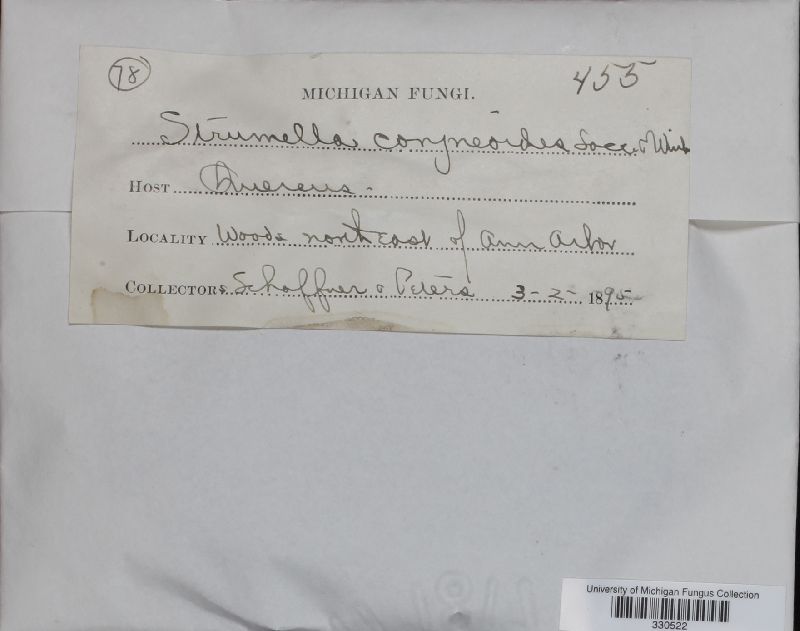 78
455
MICHIGAN FUNGI.
Strumella coryneoidea Sacc. & Wint
HOST Quercus.
LOCALITY Woods northeast of Ann Arbor
COLLECTORS. Schaffner & Peters 3-2- 1895
University of Michigan Fungus Collection
330522